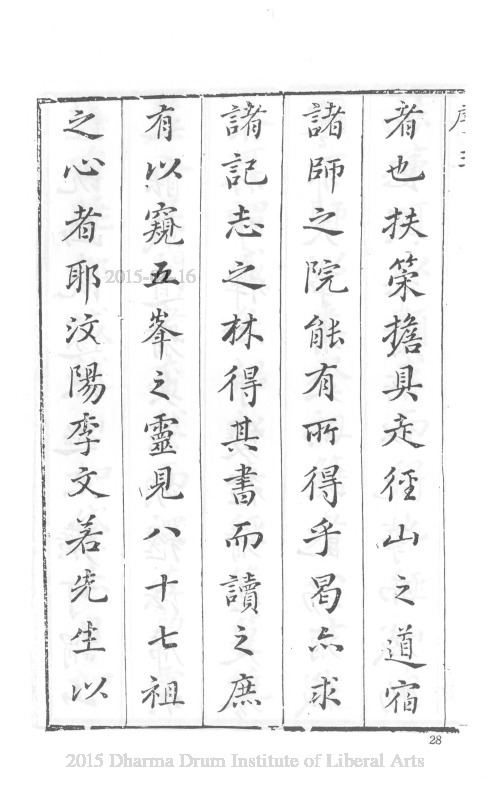 序 三
者也扶策擔具走徑山之道宿
諸師之院能有所得乎曷亦求
諸記志之林得其書而讀之庶
有以窺五峯之靈見八十七祖
之心者耶汶陽李文若先生以
28
2015 Dharma Drum Institute of Liberal Arts